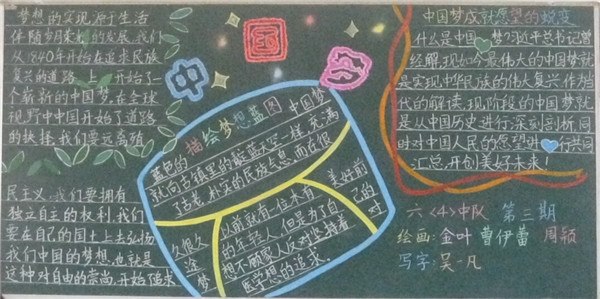 梦想的实现源于生活
伴随岁月柔和的发展,我们
从1840年开始在追求民族
复兴的道路上,开始了
个崭新的中国梦,在全球
视野中中国开始了道路
的抉择,我们要远离殖
民主义,我们要拥有
独立自主的权利,我们
要在自己的国土上去弘扬
我们中国的梦想,也就是
这种对自由的崇尚,开始追求
中国梦
描绘梦想蓝图
蓝色的 中国梦
就向古镇里的蔚蓝天空一样,充满
了古老、朴实的民族气息,而在很
久很久 以前,就有一位木有 美好前
途 的年轻人,但是为了自 己的
梦 想不顾家人反对坚持着 对
医学想的追求。
中国梦成就愿望的蜕变
什么是中国梦?习近平总书记曾
经解,现如今最伟大的中国梦就
是实现中华民族的伟大复兴作为
代的解读,现阶段的中国梦就
是从中国历史进行深刻剖析,同
时对中国人民的愿望进行共同
汇总,开创美好未来!
六<4>中队 第三期
绘画:金叶 曹伊蕾 周颖
写字:吴一凡